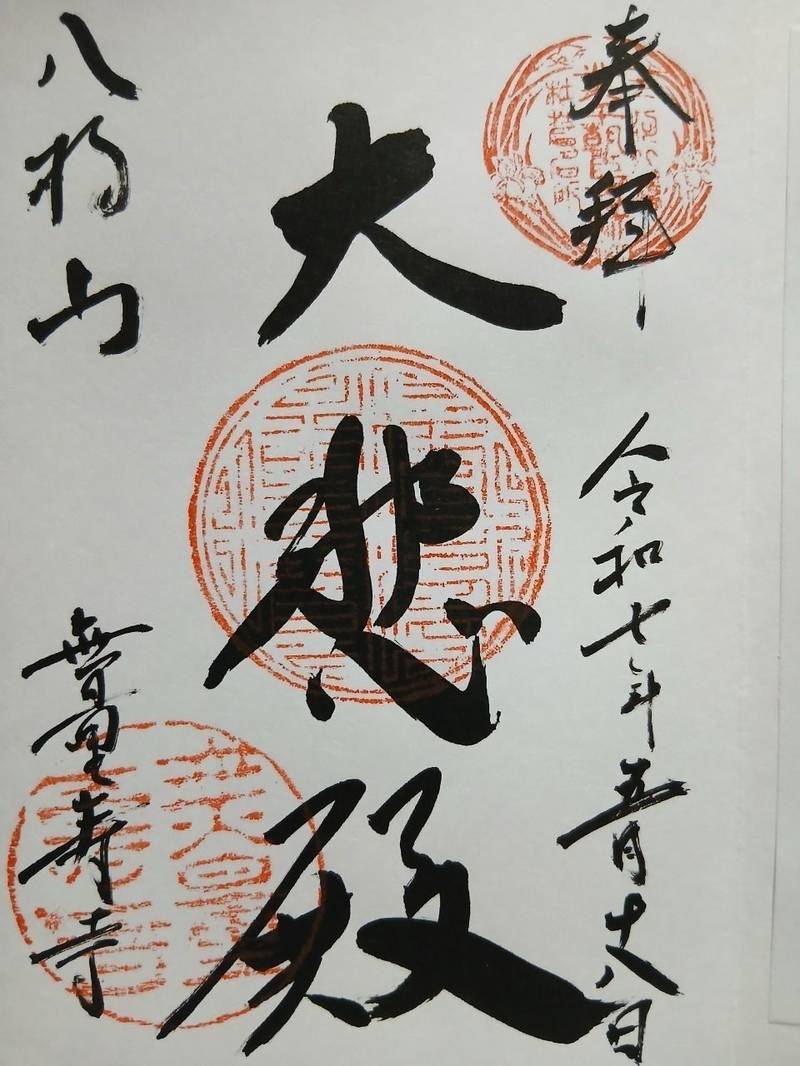 奉拝
令和七年五月十八日
大悲殿
八橋山
無量寿寺